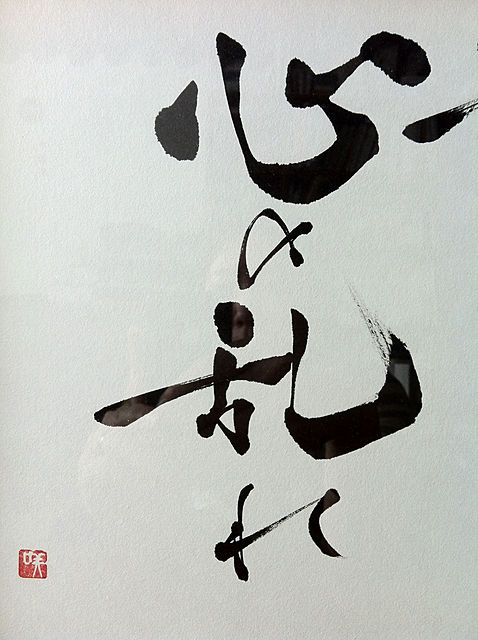 心の乱れ
咲